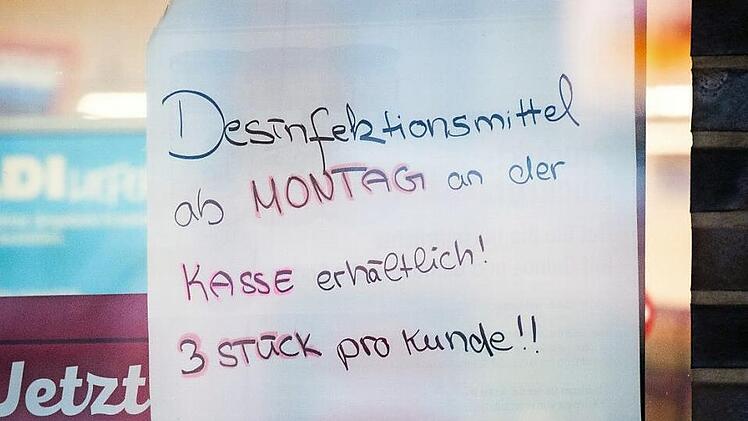 Desinfektionsmittel
ab MONTAG an der
KASSE erhältlich!
3 STÜCK pro Kunde!!
Jetzt